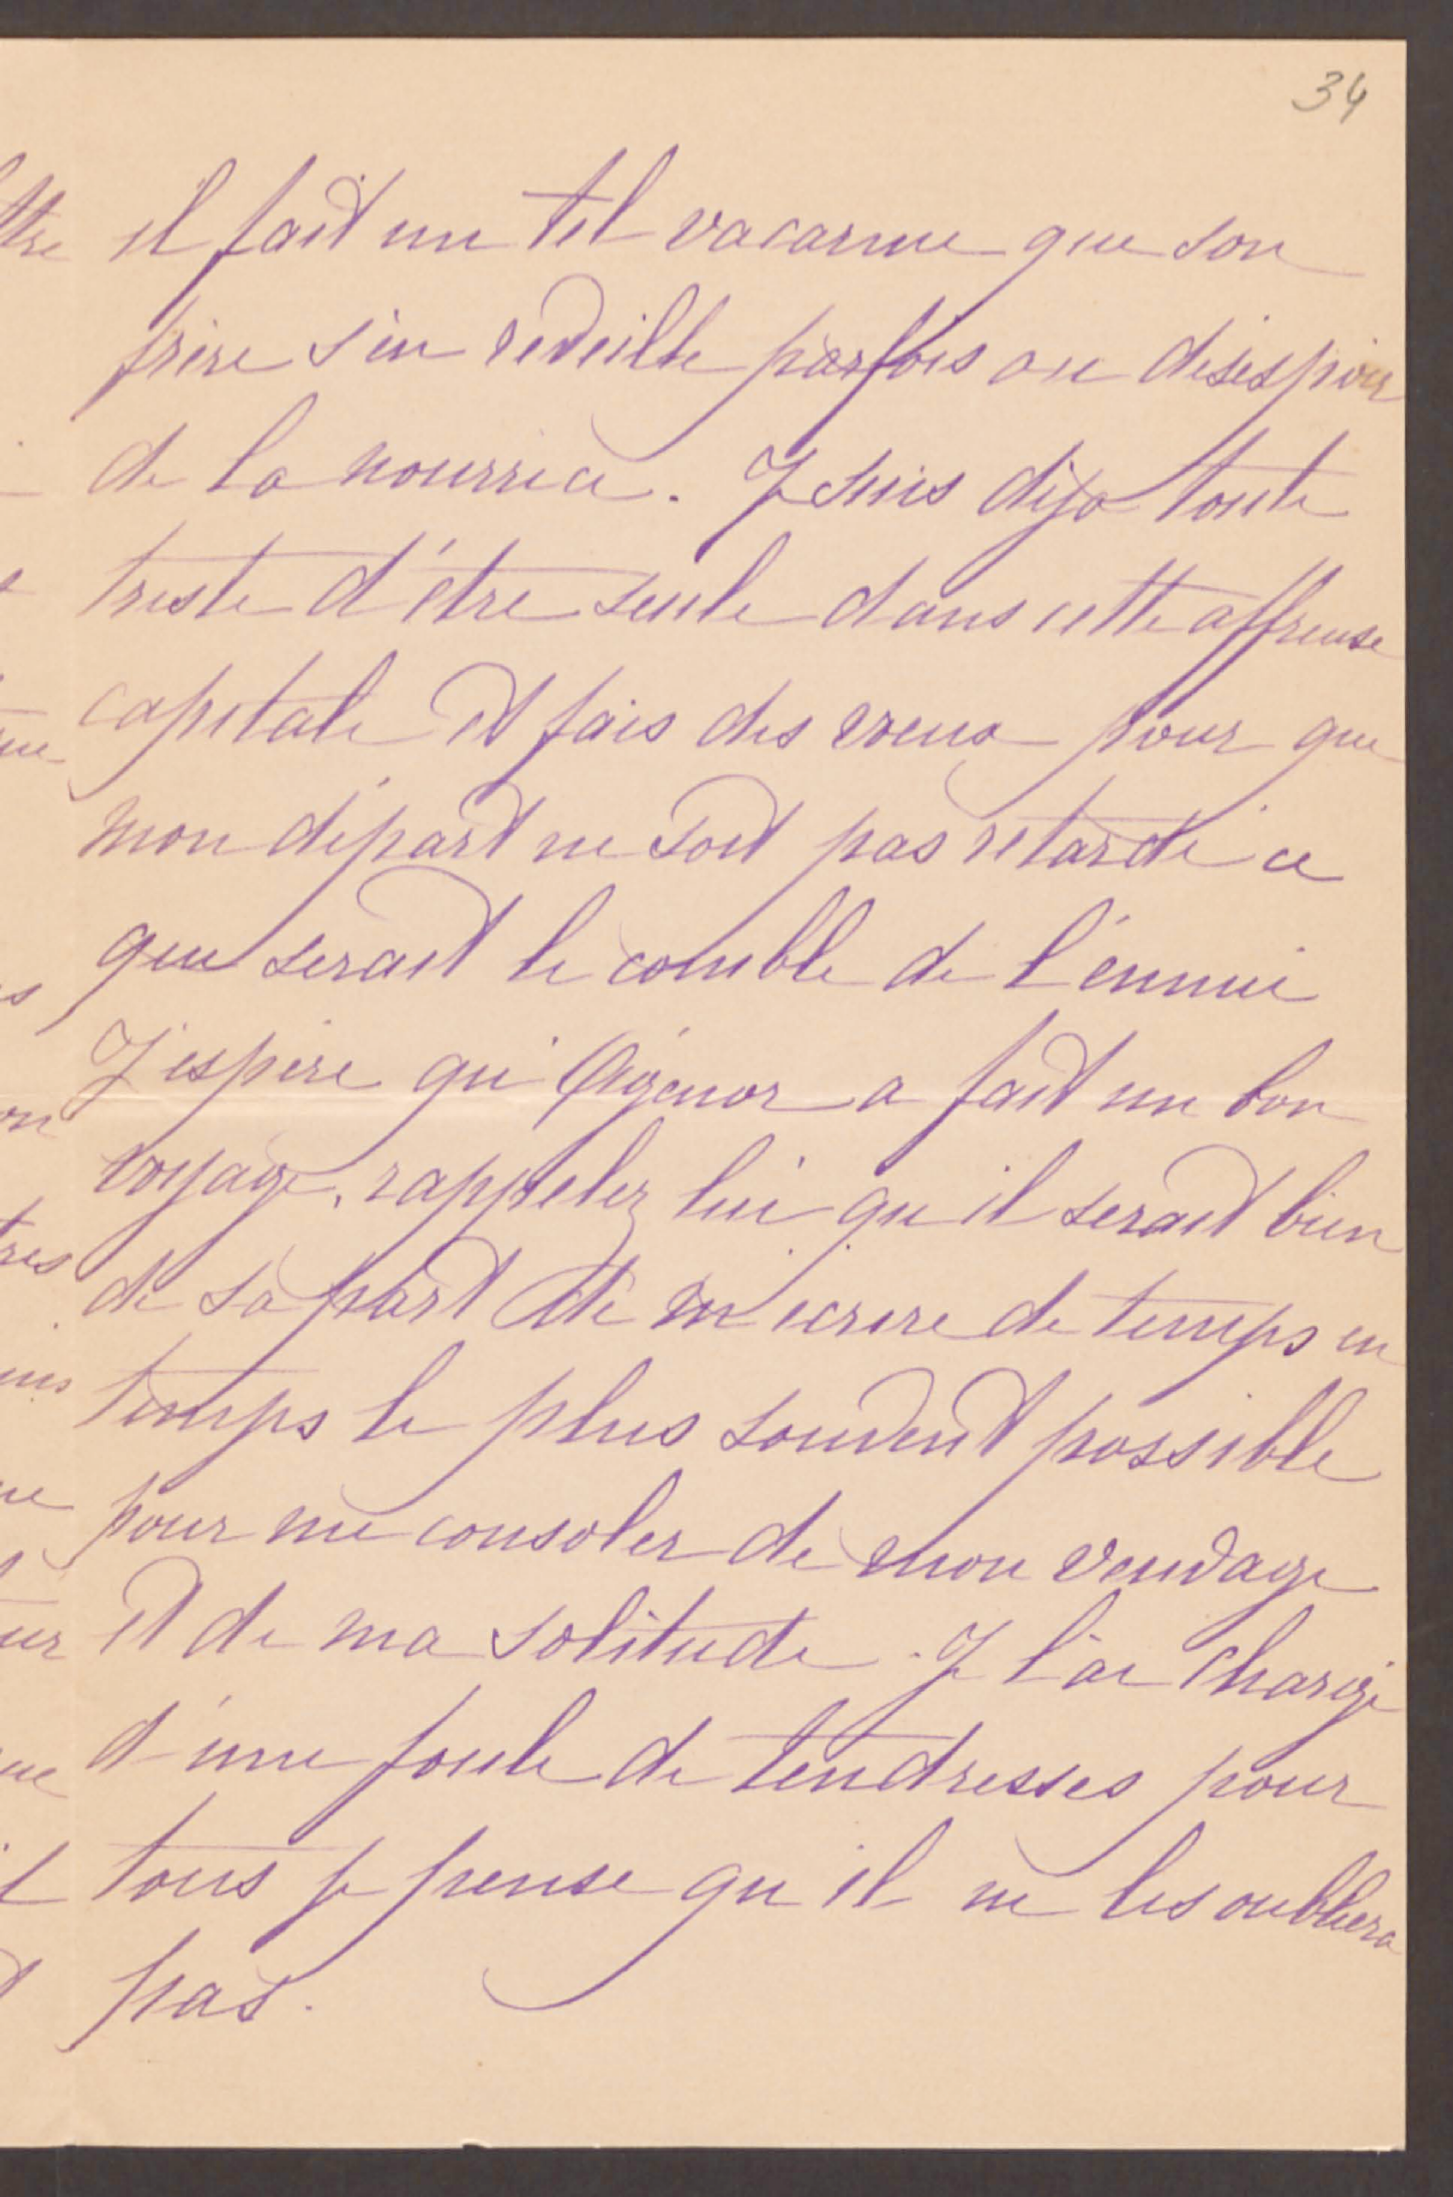 34
il fait un tel vacarme que son
frère s'en reveille parfois au desespoir
de la nourrice. Je suis déja toute
triste d'être seule dans cette affreuse
capitale et fais des voeux pour que
mon départ ne soit pas retardé ce
que serait le comble de l'ennui
J'espère qu'Agénor a fait un bon
voyage, rappelez lui qu'il serait bien
de sa part de m'ecrire de temps en
temps le plus souvent possible
pour me consoler de mon veuvage
et de ma solitude. Je l'ai chargé
d'une foule de tendresses pour
tous je pense qu'il ne les oubliera
pas.